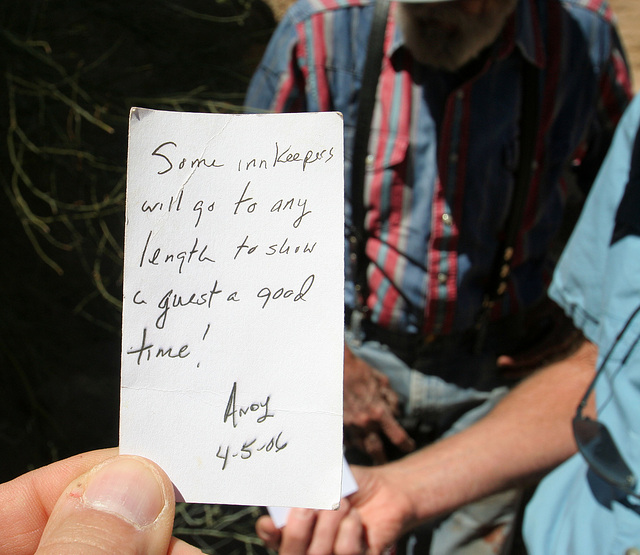 Some innkeepers
will go to any
length to show
a guest a good
time!
Andy
4-5-06